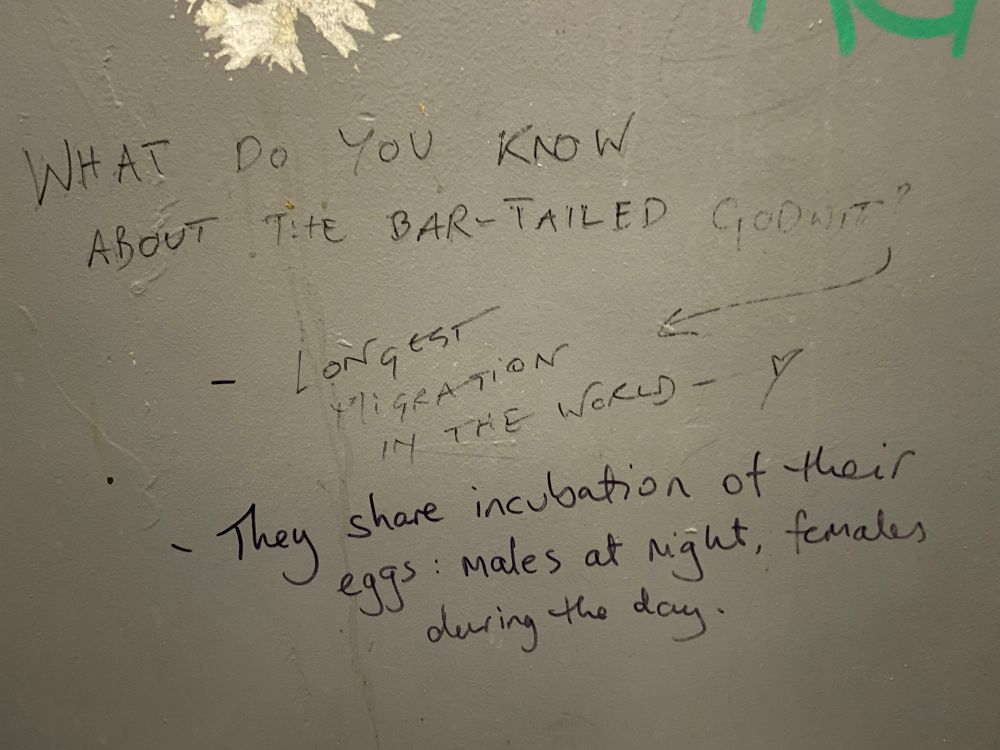 WHAT DO YOU KNOW
ABOUT THE BAR-TAILED GODWIT?
- LONGEST
MIGRATION
IN THE WORLD - Y
- They share incubation of their
eggs: males at night, females
during the day.